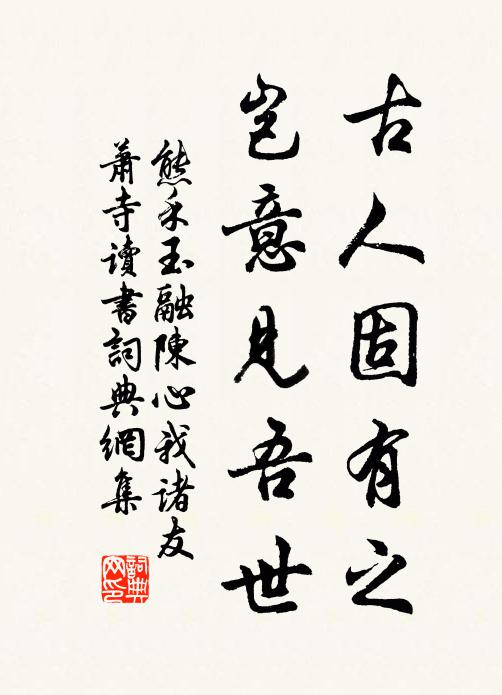 古人固有之
豈意見吾世
熊禾玉融陳心我諸友
蕭寺讀書詞典網集
詞典
网印